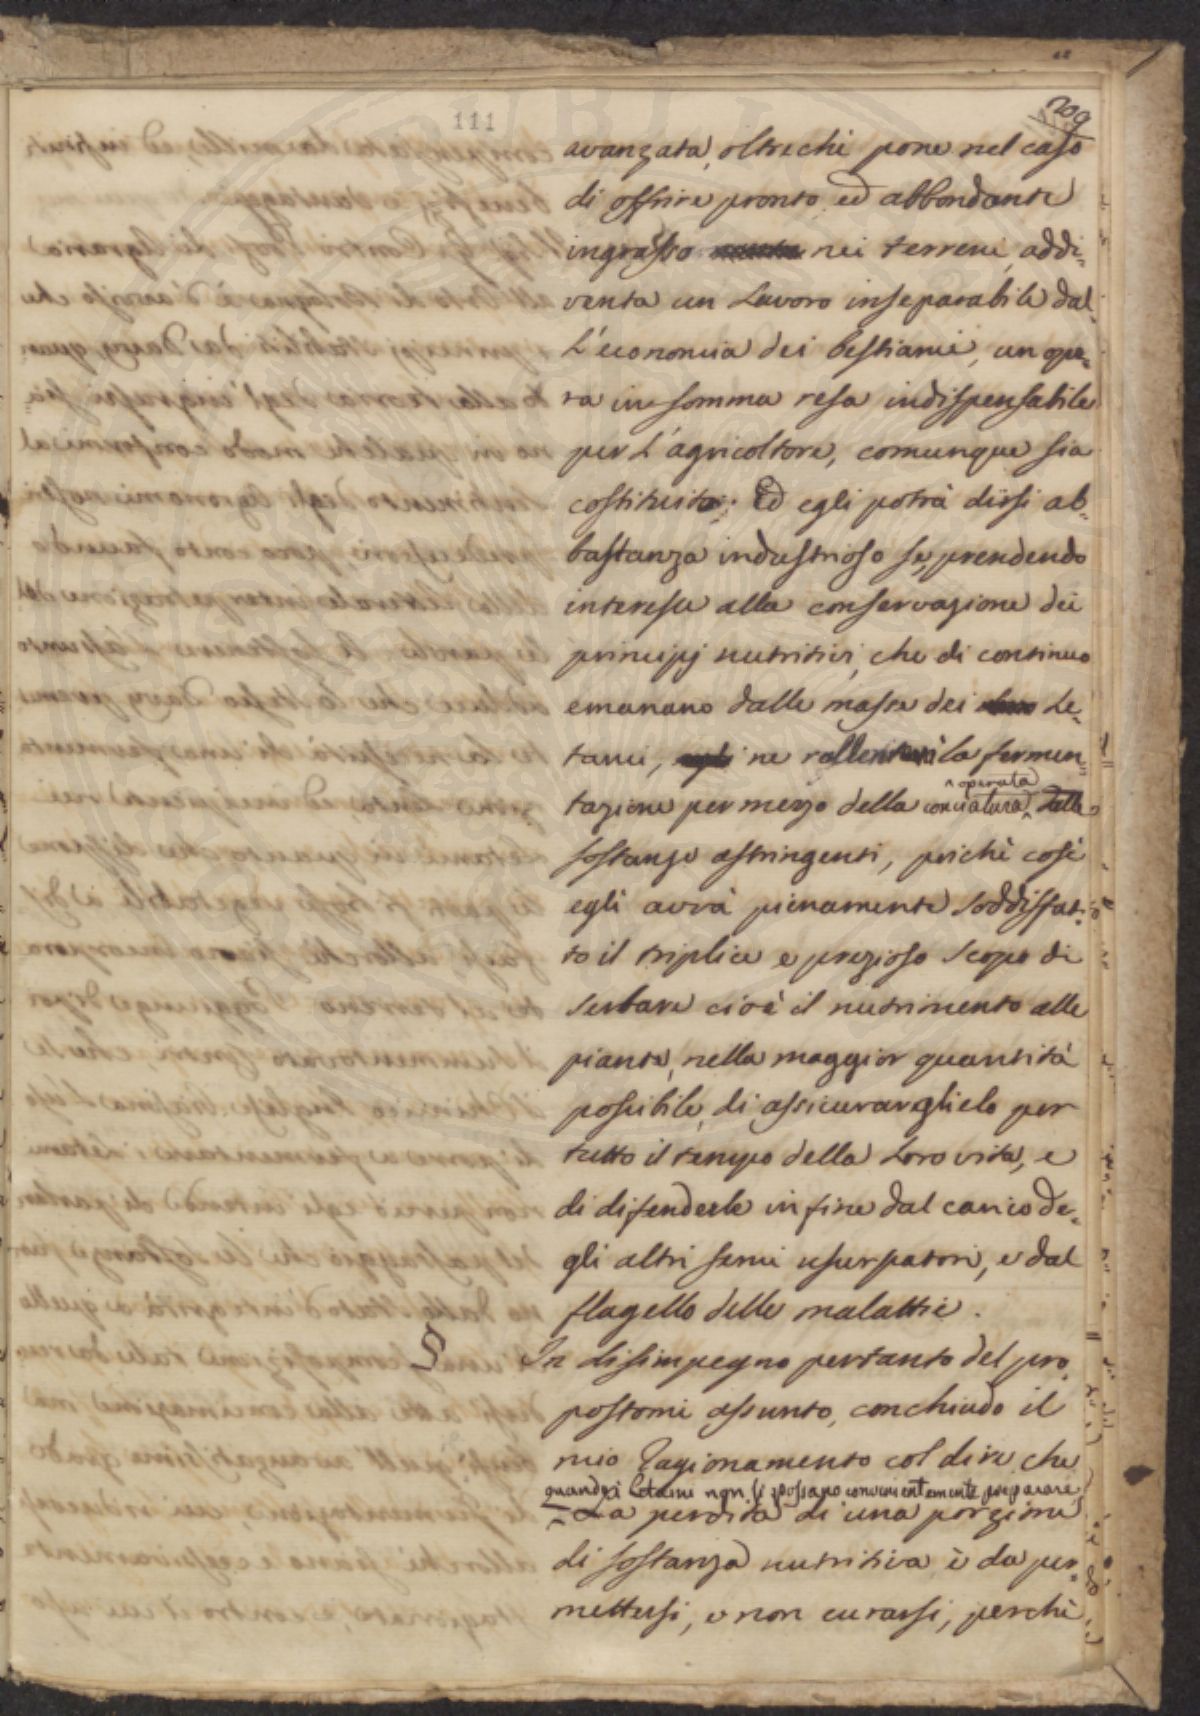 111
200
avanzata, oltrechè pone nel caso
di offrire pronto ed abbondante
ingrasso nei terreni, addi=
venta un lavoro inseparabile dal=
l'economia dei bestiami, un ope=
ra in somma resa indispensabile
per l'agricoltore, comunque sia
costituito. Ed egli potrà dirsi ab=
bastanza industrioso se, prendendo
interesse alla conservazione dei
principj nutritivi, che di continuo
emanano dalle masse dei le=
tami, ne rallenterà la fermen=
tazione per mezzo della conciatura operata dalle
sostanze astringenti, poichè così
egli avrà pienamente soddisfat=
to il triplice e prezioso scopo di
serbare cioè il nutrimento alle
piante, nella maggior quantità
possibile, di assicurarglielo per
tutto il tempo della loro vita, e
di difenderle in fine dal carico de=
gli altri semi usurpatori, e dal
flagello delle malattie.
§ In disimpegno pertanto del pro
postomi assunto, conchiudo il
mio ragionamento col dire che
quando i letami non si possano convenientemente preparare,
la perdita di una porzione
di sostanza nutritiva è da per=
mettersi, e non curarsi, perchè